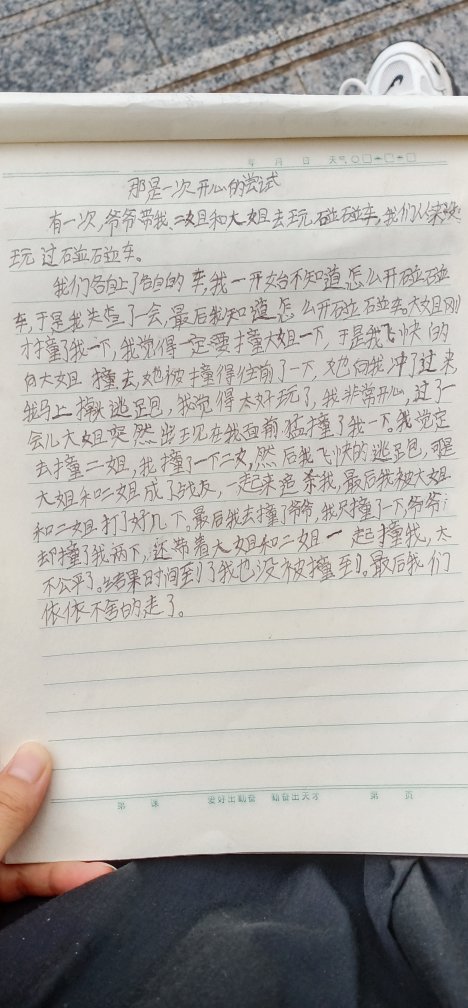 年 月 日 天气
那是一次开心的尝试
有一次,爷爷带我、二姐和大姐去玩碰碰车,我们以来没
玩过碰碰车。
我们各自上了各自的车,我一开始不知道怎么开碰碰
车,于是我失查了一会,最后我知道怎么开碰碰车。大姐刚
才撞了我一下,我觉得一定要撞大姐一下,于是我飞快的
向大姐撞去,她被撞得往前了一下,她向我冲了过来
我马上掉头逃跑,我觉得太好玩了,我非常开心,过了一
会儿大姐突然出现在我面前猛撞了我一下。我觉定
去撞二姐,我撞了一下二女,然后我飞快的逃跑,可是
大姐和二姐成了战友,一起来追杀我,最后我被大姐
和二姐打了好几下,最后我去撞了爷爷,我只撞了一下,爷爷
却撞了我两下,还带着大姐和二姐一起撞我,太
不公平了。结果时间到了我也没被撞到。最后我们
依依不舍的走了。
第 课 爱好出勤奋 勤奋出天才 第 页